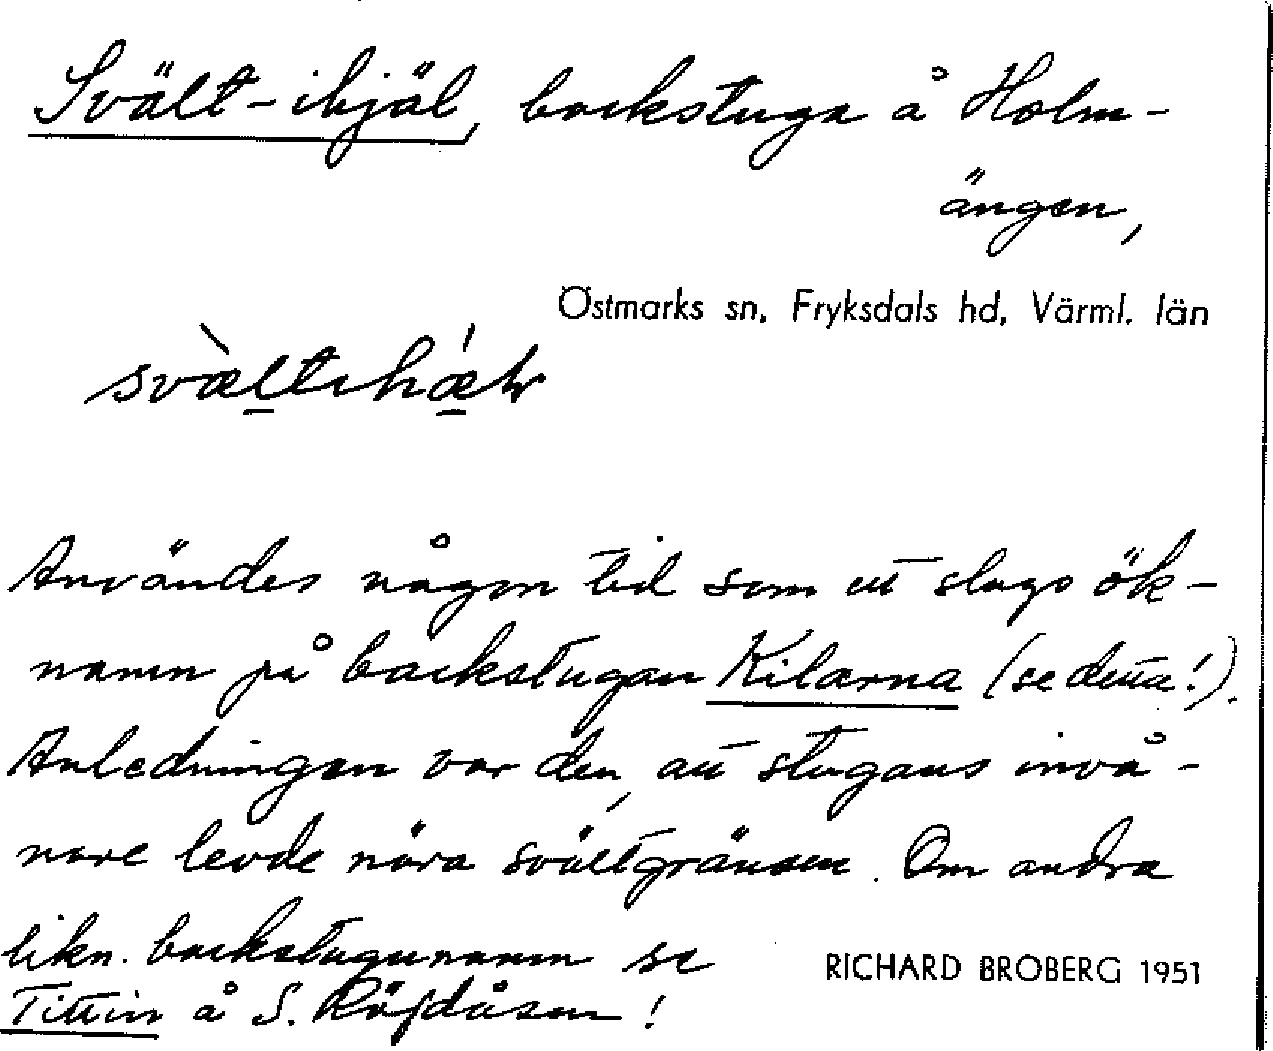 Svält-ihjäl, backstuga å Holm-
ängen,
Östmarks sn, Fryksdals hd, Värml. län
svæ̀ltihǽl
Användes någon tid som ett slags ök-
namn på backstugan Kilarna (se detta!).
Anledningen var den, att stugans invå-
nare levde nära svältgränsen. Om andra
likn. backstugunamn se
RICHARD BROBERG 1951
Tittin å S. Röjdåsen!